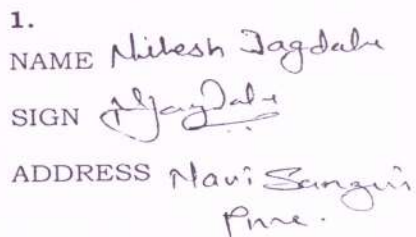 1.
NAME Nilesh Jagdale
SIGN NJagdale
ADDRESS Navi Sangvi
Pune.